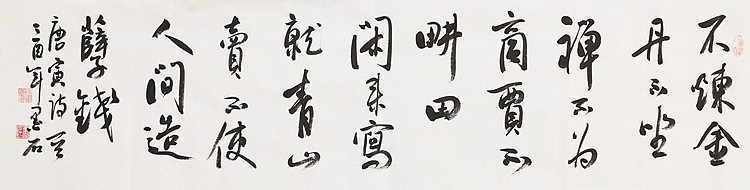 不煉金
丹不坐
禪不為
商賈不
畊田
閑來寫
就青山
賣不使
人間造
孽錢
唐寅詩
酉年墨石